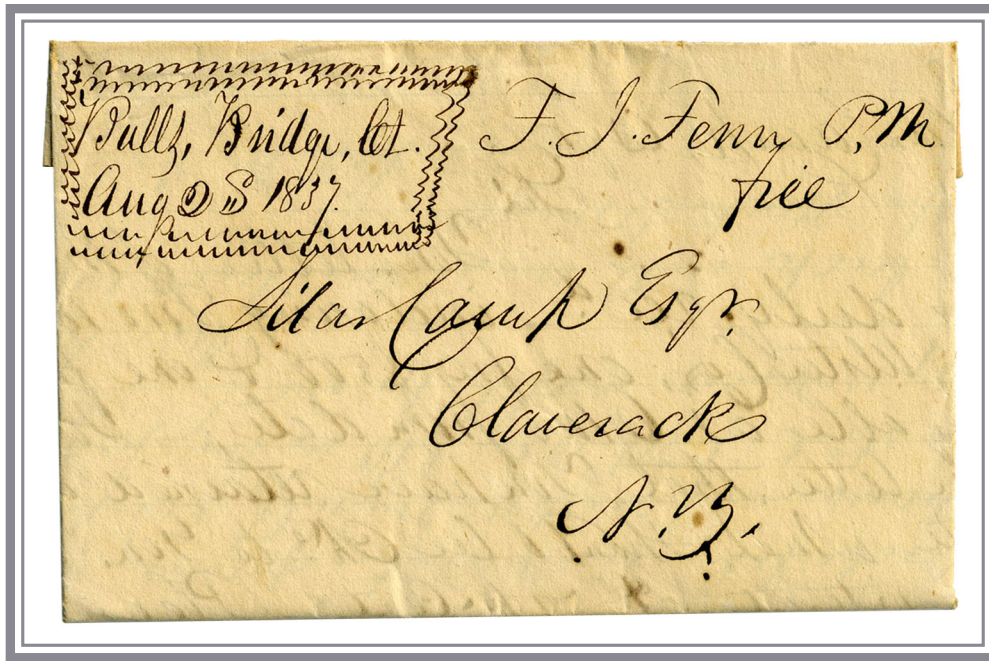 Bulls, Bridge, Ct.
Aug 28 1837.
F. J. Fenn P.M
free
Silas Camp Esqr.
Claverack
N.Y.